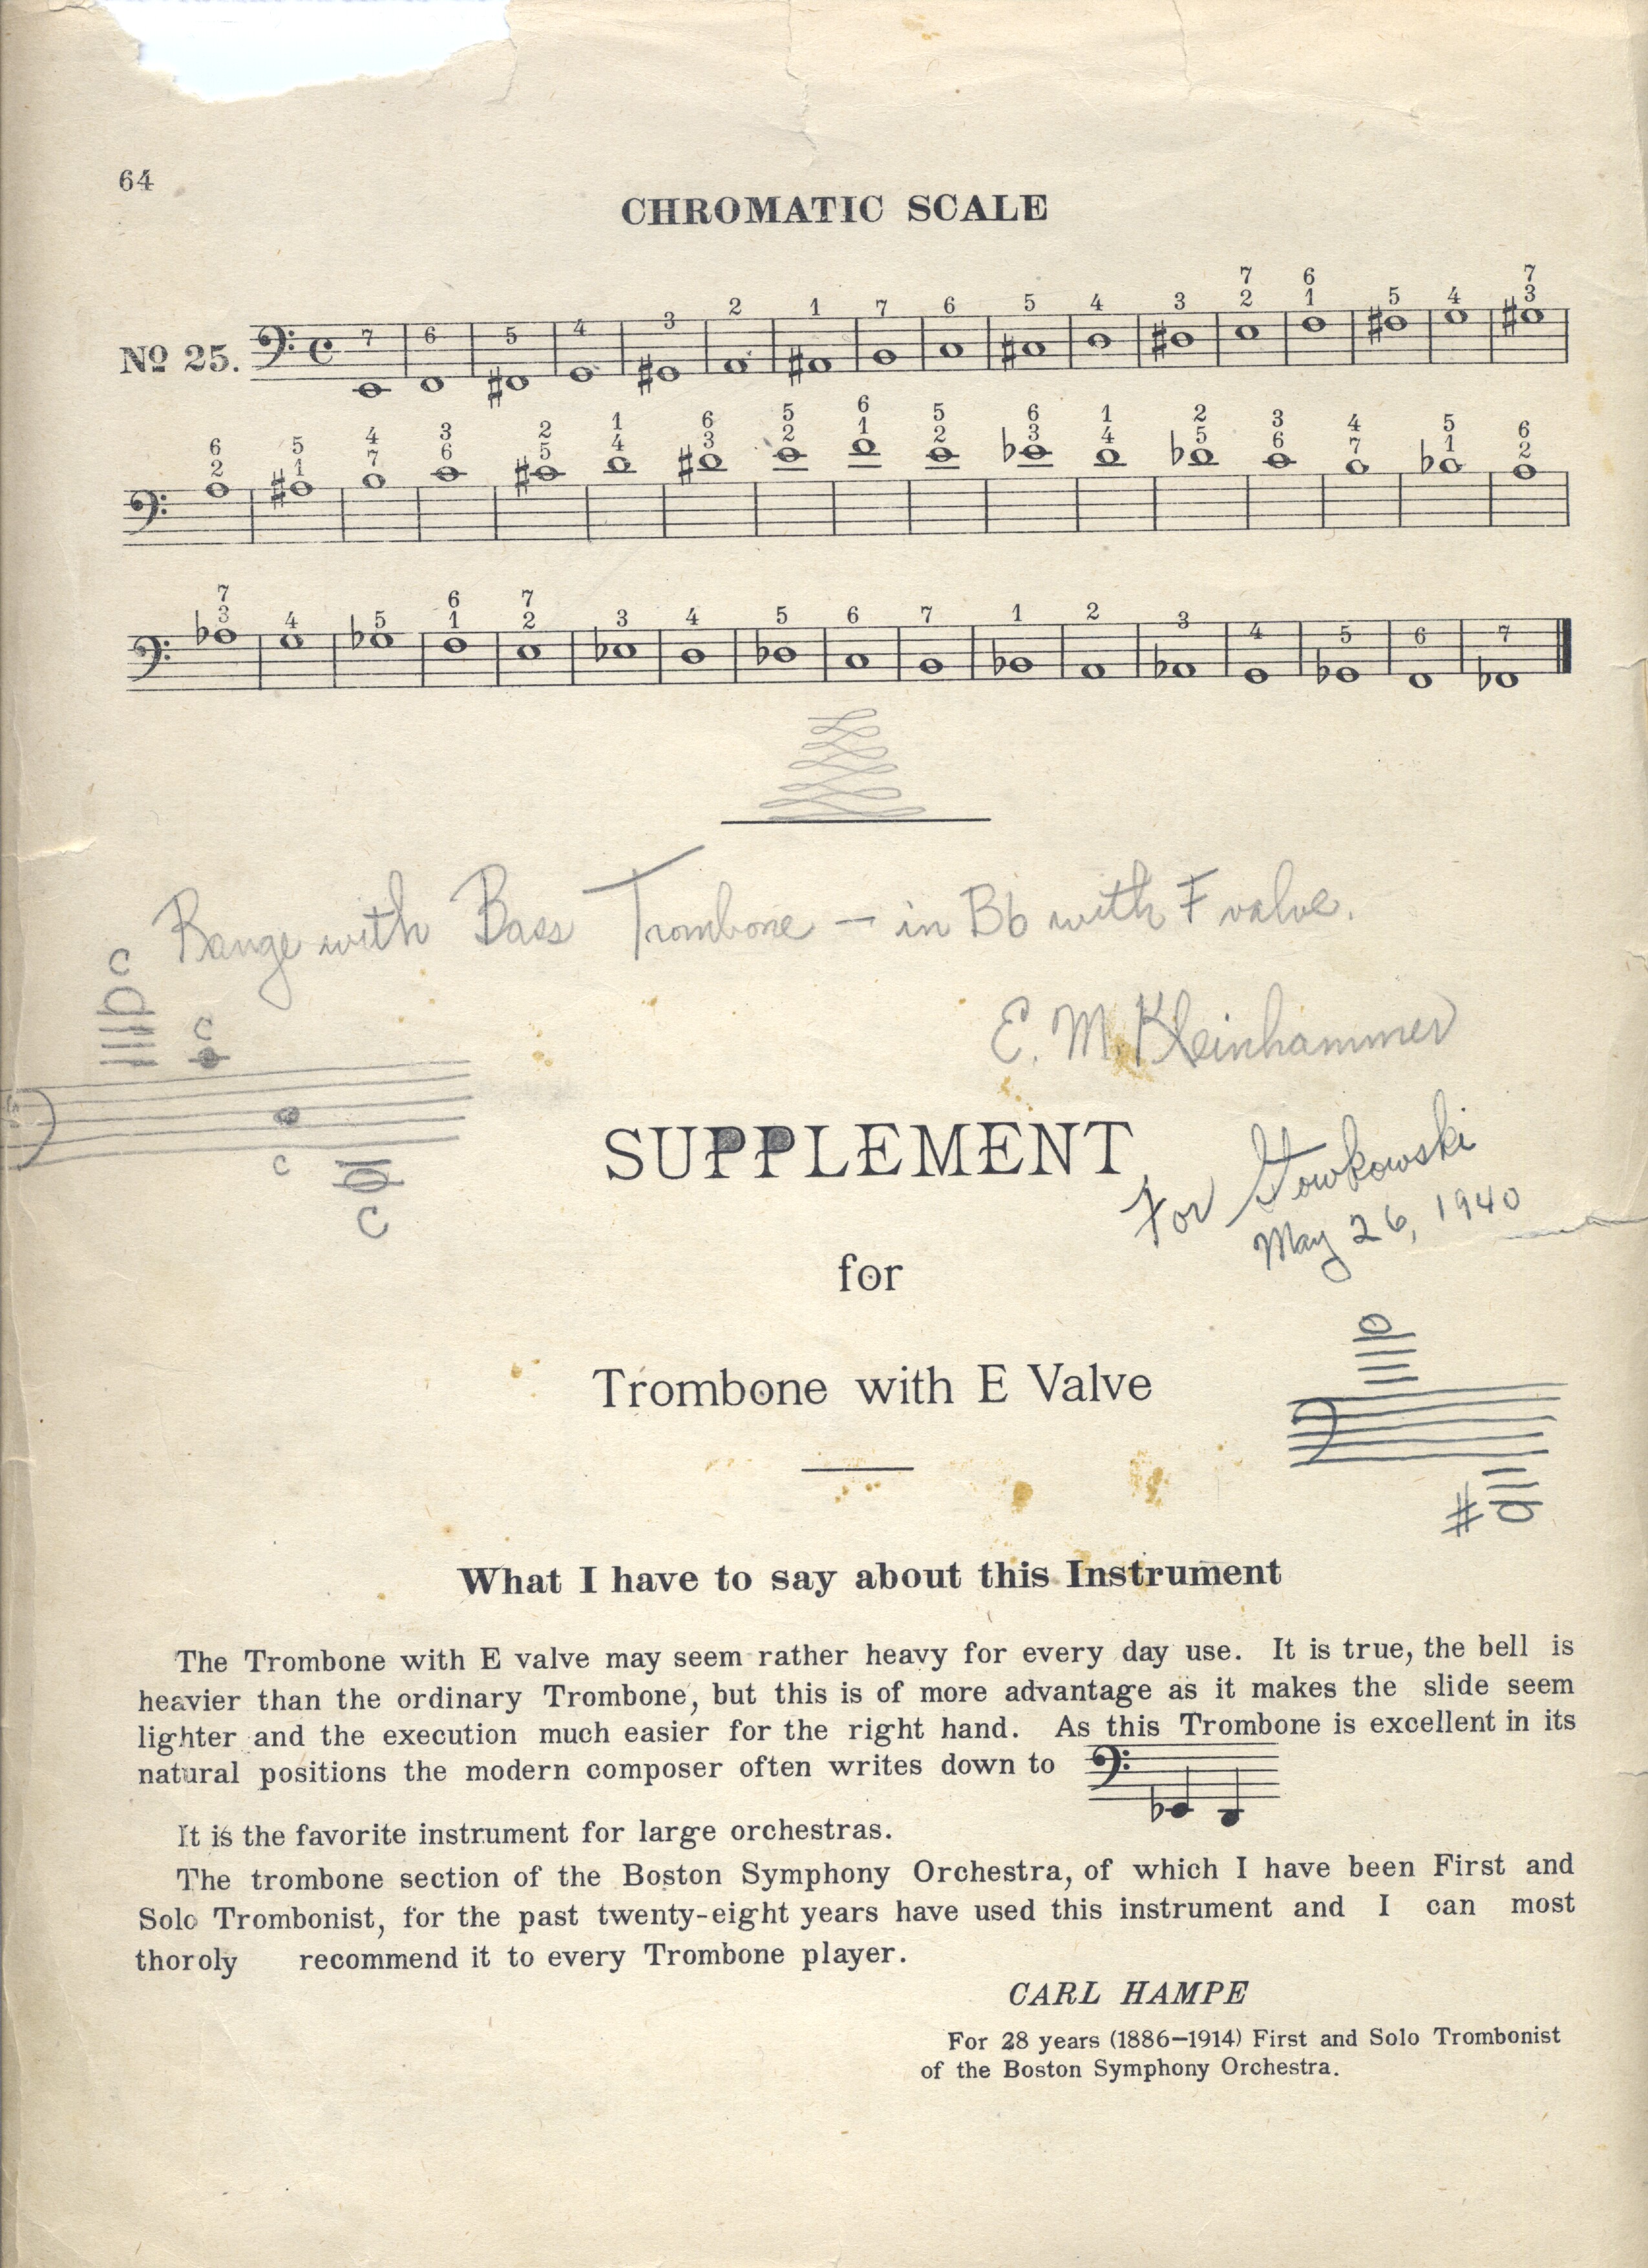 64
CHROMATIC SCALE
7 6
7 6 5 4 3 2 1 7 6 5 4 3 2 1 5 4 7 3
No 25.
6 5 4 3 2 1 6 5 6 5 6 1 2 3 4 5 6
2 1 7 6 5 4 3 2 1 2 3 4 5 6 7 1 2
7 6 7
3 4 5 1 2 3 4 5 6 7 1 2 3 4 5 6 7
Range with Bass Trombone – in Bb with F valve.
C
C
E. M. Kleinhammer
C
C
SUPPLEMENT
For Stowkowski
May 26, 1940
for
Trombone with E Valve
What I have to say about this Instrument
The Trombone with E valve may seem rather heavy for every day use. It is true, the bell is
heavier than the ordinary Trombone, but this is of more advantage as it makes the slide seem
lighter and the execution much easier for the right hand. As this Trombone is excellent in its
natural positions the modern composer often writes down to
It is the favorite instrument for large orchestras.
The trombone section of the Boston Symphony Orchestra, of which I have been First and
Solo Trombonist, for the past twenty-eight years have used this instrument and I can most
thoroly recommend it to every Trombone player.
CARL HAMPE
For 28 years (1886–1914) First and Solo Trombonist
of the Boston Symphony Orchestra.